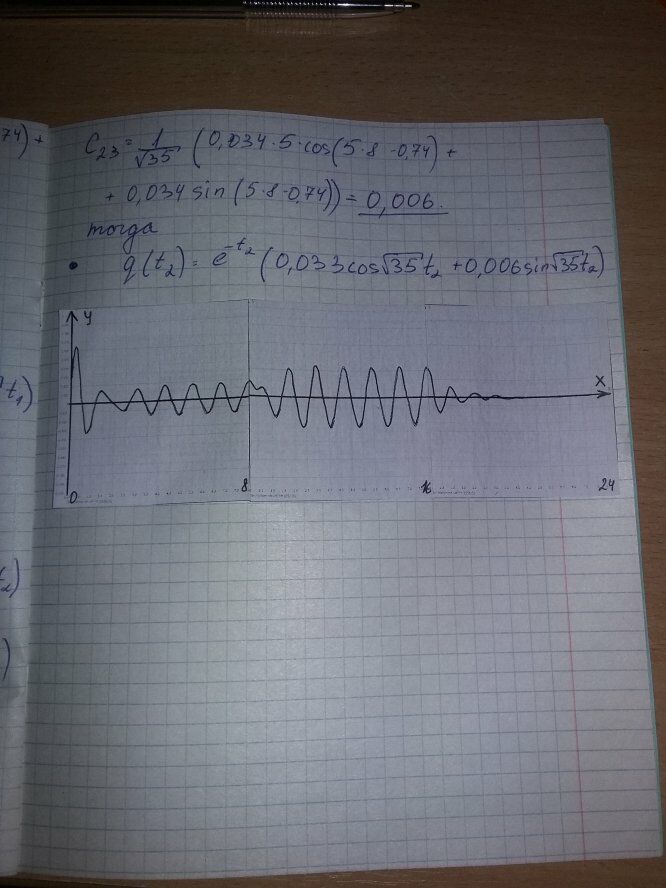 74) +
C₂₃ = 1/√35 (0,034·5·cos(5·8 -0,74) +
+ 0,034 sin (5·8-0,74)) = 0,006.
тогда
• q(t₂) = e^-t₂ (0,033cos√35t₂ +0,006sin√35t₂)
y
x
t₁)
0 8 16 24
t₂)
)